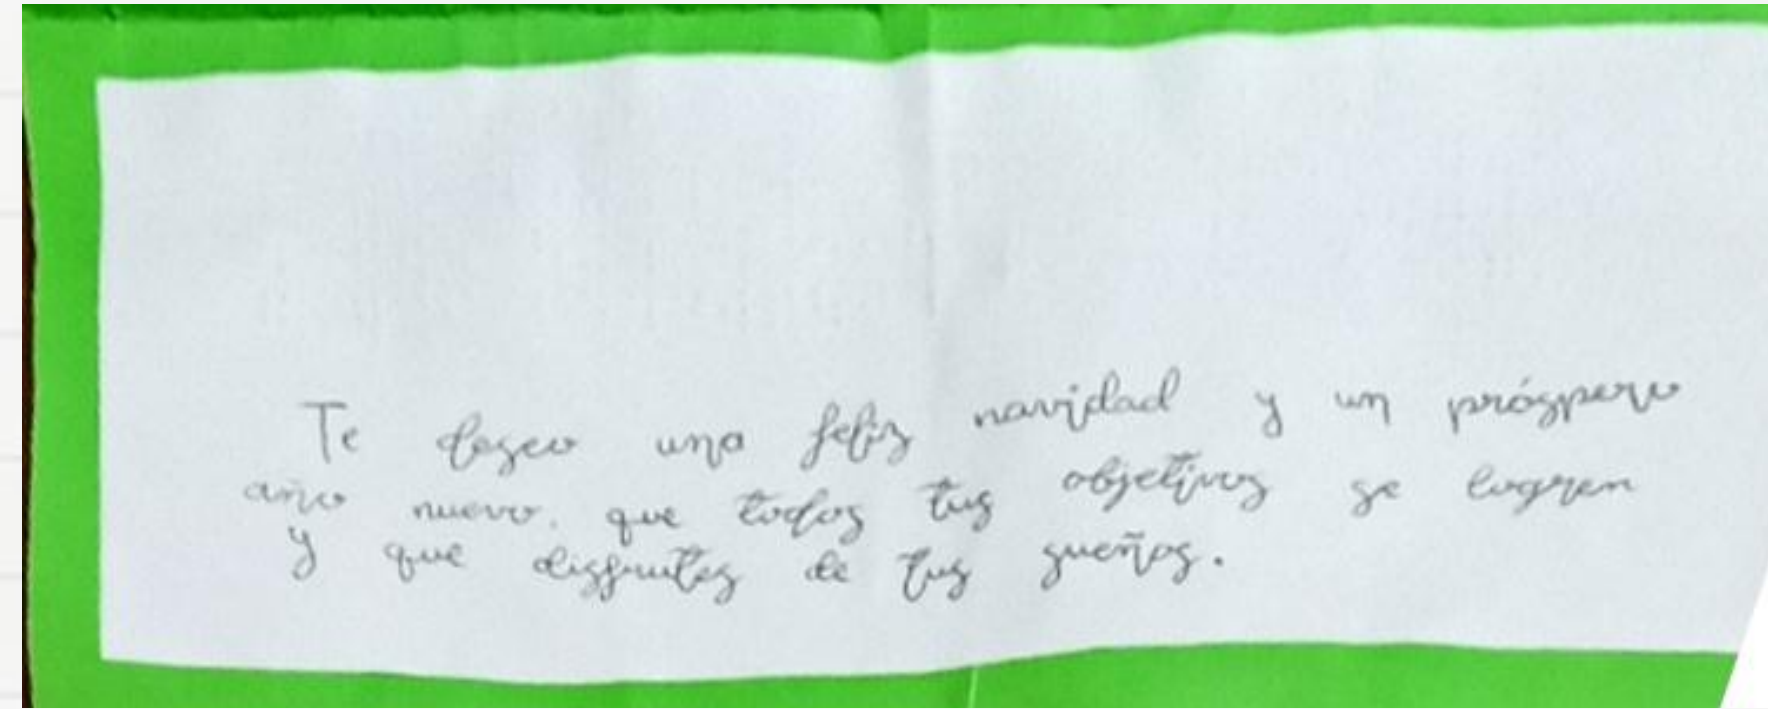 Te deseo una feliz navidad y un próspero
año nuevo, que todos tus objetivos se logren
y que disfrutes de tus sueños.